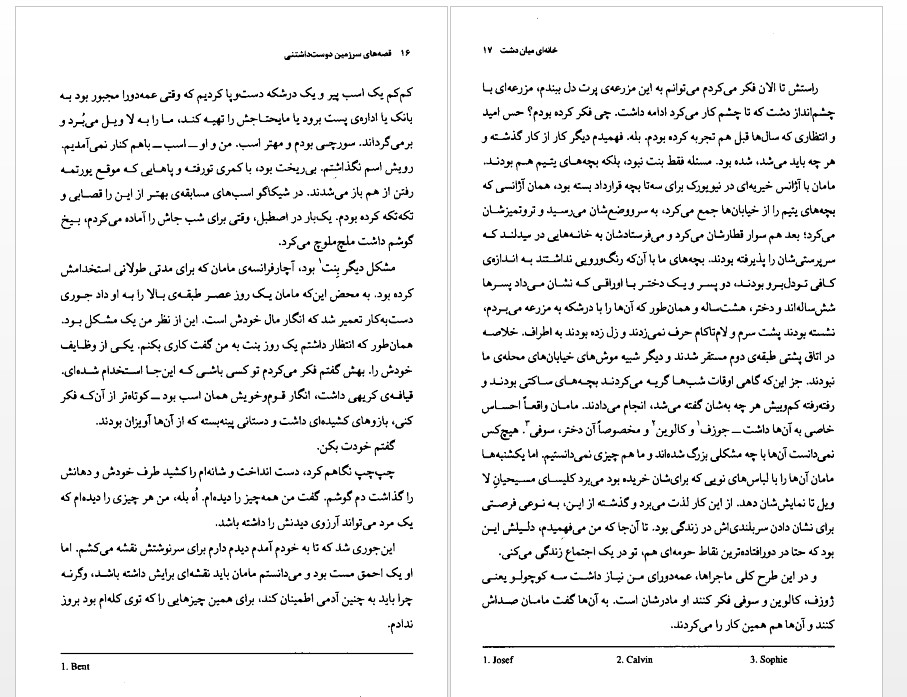 ۱۶ قصه‌های سرزمین دوست‌داشتنی
کم‌کم یک اسب پیر و یک درشکه دست‌وپا کردیم که وقتی عمه‌دورا مجبور بود به
بانک یا اداره‌ی پست برود یا مایحتاجش را تهیه کند، ما را به لا ویل می‌بُرد و
برمی‌گرداند. سورچی بودم و مهتر اسب. من و او ــ اسب ــ باهم کنار نمی‌آمدیم.
رویش اسم نگذاشتم. بی‌ریخت بود، با کمری تورفته و پاهایی که موقع یورتمه
رفتن از هم باز می‌شدند. در شیکاگو اسب‌های مسابقه‌ی بهتر از این را قصابی و
تکه‌تکه کرده بودم. یک‌بار در اصطبل، وقتی برای شب جاش را آماده می‌کردم، بیخ
گوشم داشت ملچ‌ملوچ می‌کرد.
مشکل دیگر بِنت۱ بود، آچارفرانسه‌ی مامان که برای مدتی طولانی استخدامش
کرده بود. به محض این‌که مامان یک روز عصر طبقه‌ی بالا را به او داد جوری
دست‌به‌کار تعمیر شد که انگار مال خودش است. این از نظر من یک مشکل بود.
همان‌طور که انتظار داشتم یک روز بنت به من گفت کاری بکنم. یکی از وظایف
خودش را. بهش گفتم فکر می‌کردم تو کسی باشی که این‌جا استخدام شده‌ای.
قیافه‌ی کریهی داشت، انگار قوم‌وخویش همان اسب بود ــ کوتاه‌تر از آن‌که فکر
کنی، بازوهای کشیده‌ای داشت و دستانی پینه‌بسته که از آن‌ها آویزان بودند.
گفتم خودت بکن.
چپ‌چپ نگاهم کرد، دست انداخت و شانه‌ام را کشید طرف خودش و دهانش
را گذاشت دم گوشم. گفت من همه‌چیز را دیده‌ام. اُه بله، من هر چیزی را دیده‌ام که
یک مرد می‌تواند آرزوی دیدنش را داشته باشد.
این‌جوری شد که تا به خودم آمدم دیدم دارم برای سرنوشتش نقشه می‌کشم. اما
او یک احمق مست بود و می‌دانستم مامان باید نقشه‌ای برایش داشته باشد، وگرنه
چرا باید به چنین آدمی اطمینان کند، برای همین چیزهایی را که توی کله‌ام بود بروز
ندادم.
1. Bent
خانه‌ای میان دشت ۱۷
راستش تا الان فکر می‌کردم می‌توانم به این مزرعه‌ی پرت دل ببندم، مزرعه‌ای با
چشم‌انداز دشت که تا چشم کار می‌کرد ادامه داشت. چی فکر کرده بودم؟ حس امید
و انتظاری که سال‌ها قبل هم تجربه کرده بودم. بله. فهمیدم دیگر کار از کار گذشته و
هر چه باید می‌شد، شده بود. مسئله فقط بنت نبود، بلکه بچه‌های یتیم هم بودند.
مامان با آژانس خیریه‌ای در نیویورک برای سه‌تا بچه قرارداد بسته بود، همان آژانسی که
بچه‌های یتیم را از خیابان‌ها جمع می‌کرد، به سرووضع‌شان می‌رسید و تروتمیزشان
می‌کرد؛ بعد هم سوار قطارشان می‌کرد و می‌فرستادشان به خانه‌هایی در میدلند که
سرپرستی‌شان را پذیرفته بودند. بچه‌های ما با آن‌که رنگ‌ورویی نداشتند به اندازه‌ی
کافی تودل‌برو بودند، دو پسر و یک دختر با اوراقی که نشان می‌داد پسرها
شش‌ساله‌اند و دختر، هشت‌ساله و همان‌طور که آن‌ها را با درشکه به مزرعه می‌بردم،
نشسته بودند پشت سرم و لام‌تاکام حرف نمی‌زدند و زل زده بودند به اطراف. خلاصه
در اتاق پشتی طبقه‌ی دوم مستقر شدند و دیگر شبیه موش‌های خیابان‌های محله‌ی ما
نبودند. جز این‌که گاهی اوقات شب‌ها گریه می‌کردند بچه‌های ساکتی بودند و
رفته‌رفته کم‌وبیش هر چه به‌شان گفته می‌شد، انجام می‌دادند. مامان واقعاً احساس
خاصی به آن‌ها داشت ــ جوزف۱ و کالوین۲ و مخصوصاً آن دختر، سوفی۳. هیچ‌کس
نمی‌دانست آن‌ها با چه مشکلی بزرگ شده‌اند و ما هم چیزی نمی‌دانستیم. اما یکشنبه‌ها
مامان آن‌ها را با لباس‌های نویی که برای‌شان خریده بود می‌برد کلیسای مسیحیانِ لا
ویل تا نمایش‌شان دهد. از این کار لذت می‌برد و گذشته از این، به نوعی فرصتی
برای نشان دادن سربلندی‌اش در زندگی بود. تا آن‌جا که من می‌فهمیدم، دلیلش این
بود که حتا در دورافتاده‌ترین نقاط حومه‌ای هم، تو در یک اجتماع زندگی می‌کنی.
و در این طرح کلی ماجراها، عمه‌دورای من نیاز داشت سه کوچولو یعنی
ژوزف، کالوین و سوفی فکر کنند او مادرشان است. به آن‌ها گفت مامان صداش
کنند و آن‌ها هم همین کار را می‌کردند.
1. Josef 2. Calvin 3. Sophie